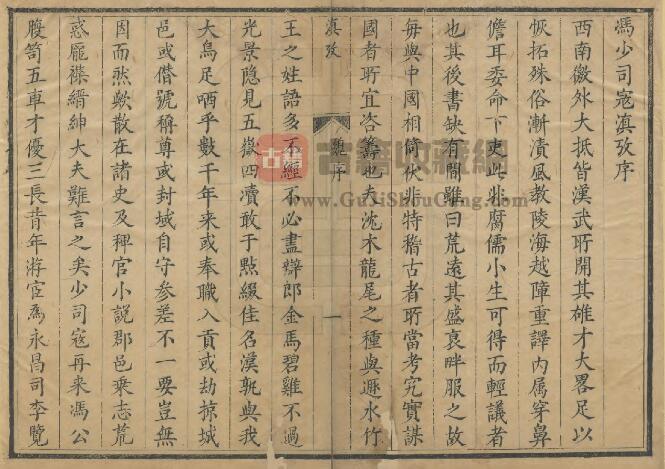 馮少司寇滇攷序
西南徼外大抵皆漢武所開其雄才大畧足以
恢拓殊俗漸漬風教陵海越障重譯内属穿鼻
儋耳委命下吏此非腐儒小生可得而輕議者
也其後書缺有間雖曰荒遠其盛衰畔服之故
每與中國相倚伏非特稽古者所當考究實謀
國者所宜咨籌也夫沈木龍尾之種與遯水竹
滇攷
序
一
王之姓語多不經不必盡辯郎金馬碧雞不過
光景隐見五嶽四瀆敢于點綴佳名漢孰與我
大烏足哂乎數千年来或奉職入貢或劫掠城
邑或僭號稱尊或封域自守参差不一要豈無
因而然欤散在諸史及稗官小說郡邑乘志荒
惑厖襍縉紳大夫難言之矣少司寇再来馮公
腹笥五車才優三長昔年游宦為永昌司李覽
古籍收藏网
www.GuJiShouCang.com